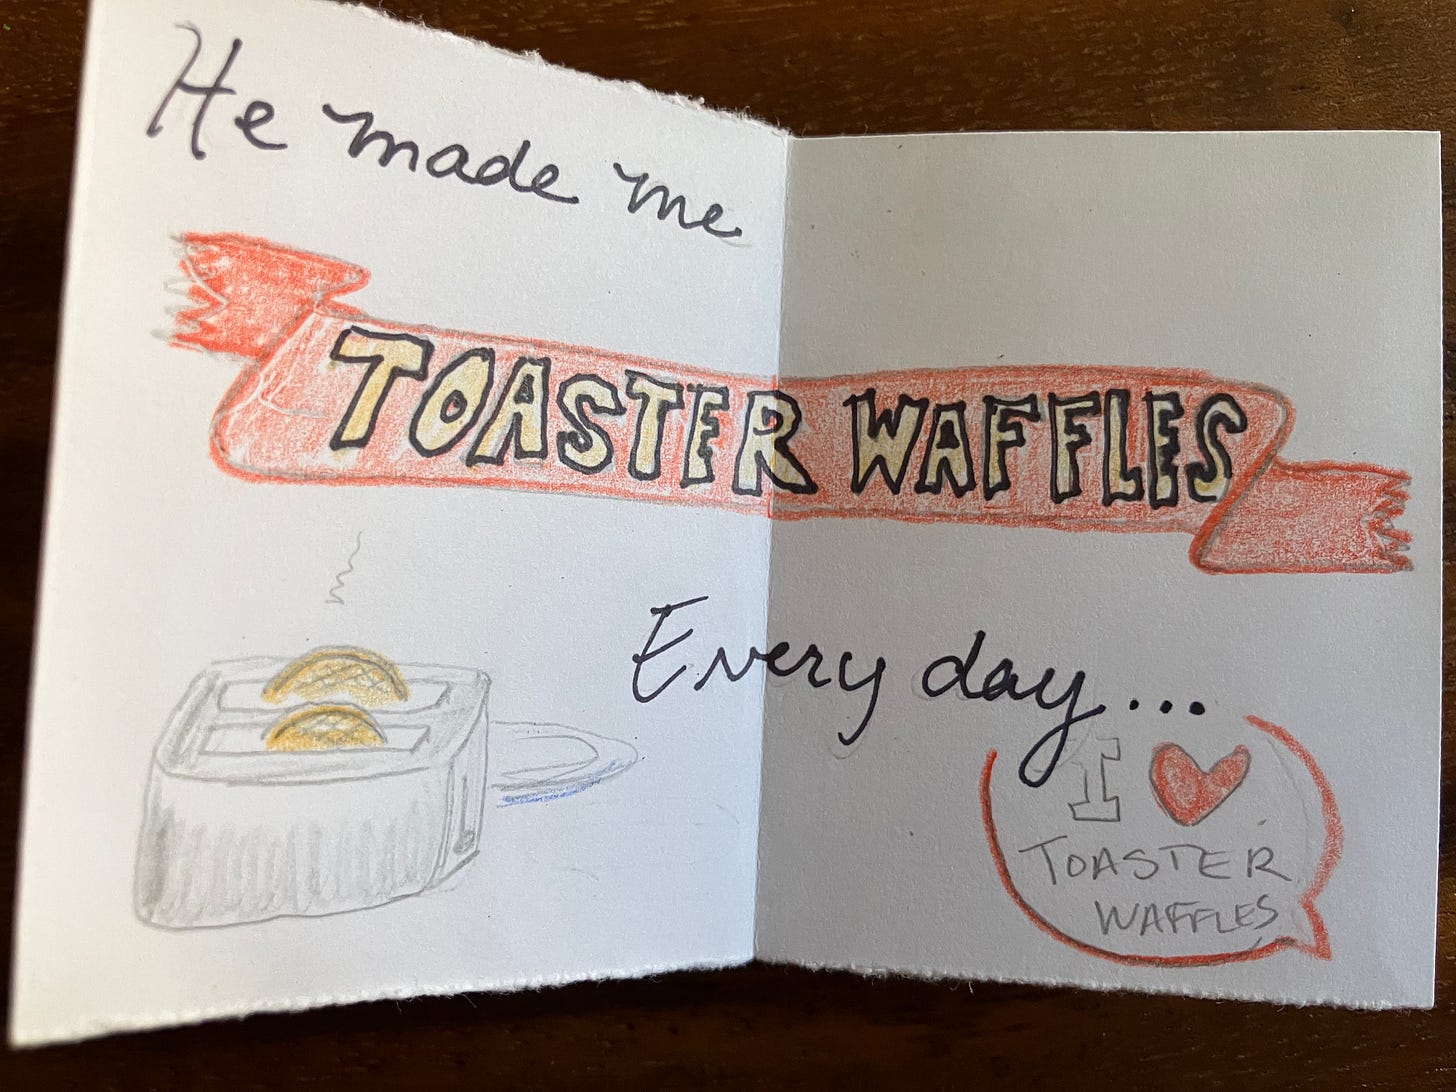 He made me
TOASTER WAFFLES
Every day...
I ♥
TOASTER
WAFFLES